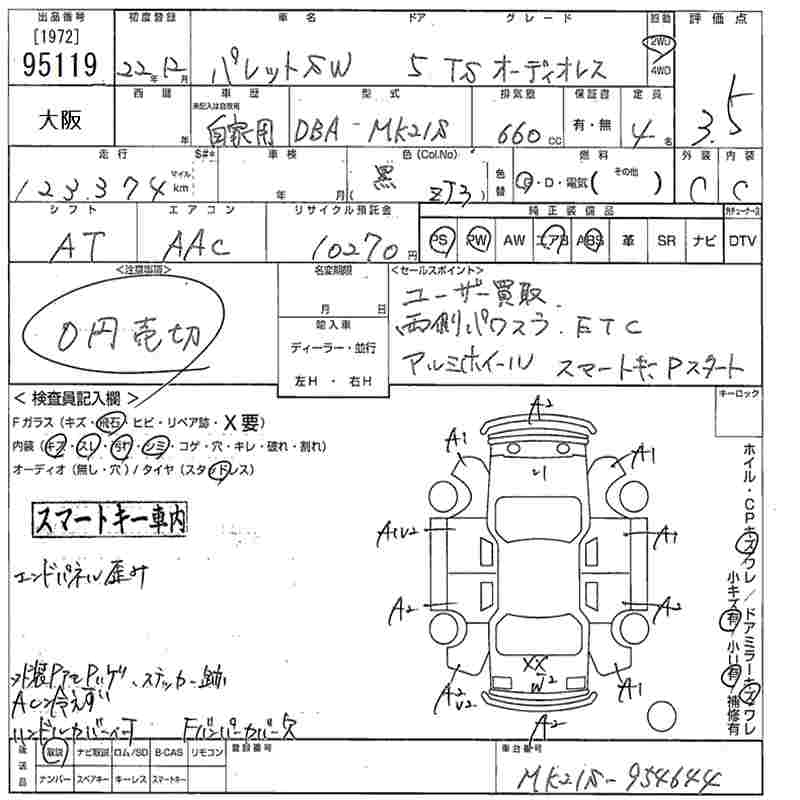 出品番号 初度登録 車名 ドア グレード 駆動 評価点
[1972]
95119 22年12月 パレットSW 5 TS オーディオレス 2WD 4WD 3.5
大阪
西暦 年 車歴 未記入は自家用 自家用 型式 DBA-MK21S 排気量 660cc 保証書 有・無 定員 4名
走行 123,374 マイル km $#* 車検 年 月 色(Col.No) 黒 ( ZJ3 ) 色替 燃料 G・D・電気( その他 ) 外装 C 内装 C
シフト エアコン リサイクル預託金 純正装備品
AT AAC 10270円 PS PW AW エアB ABS 革 SR ナビ DTV
<注意事項>
0円売切
名変期限
月 日
輸入車
ディーラー・並行
左H ・ 右H
<セールスポイント>
ユーザー買取.
両側パワスラ. ETC
アルミホイール スマートキー Pスタート
キーロック
< 検査員記入欄 >
Fガラス(キズ・飛石・ヒビ・リペア跡・X要)
内装(キズ・スレ・汚れ・シミ・コゲ・穴・キレ・破れ・割れ)
オーディオ(無し・穴)/タイヤ(スタッドレス)
スマートキー車内
エンドパネル歪み
ステッカー跡
ACン冷えず
A2
A1 A1
A1U2 A1
A2 A2
XX
W2
A2 U2 A1
A2
ホイル・CPキズワレ/ドアミラーキズワレ
小キズ有・小U有・補修有
後送品 取説 ナビ取説 ロム/SD B-CAS リモコン 登録番号 車台番号
ナンバー スペアキー キーレス スマートキー MK21S-954644